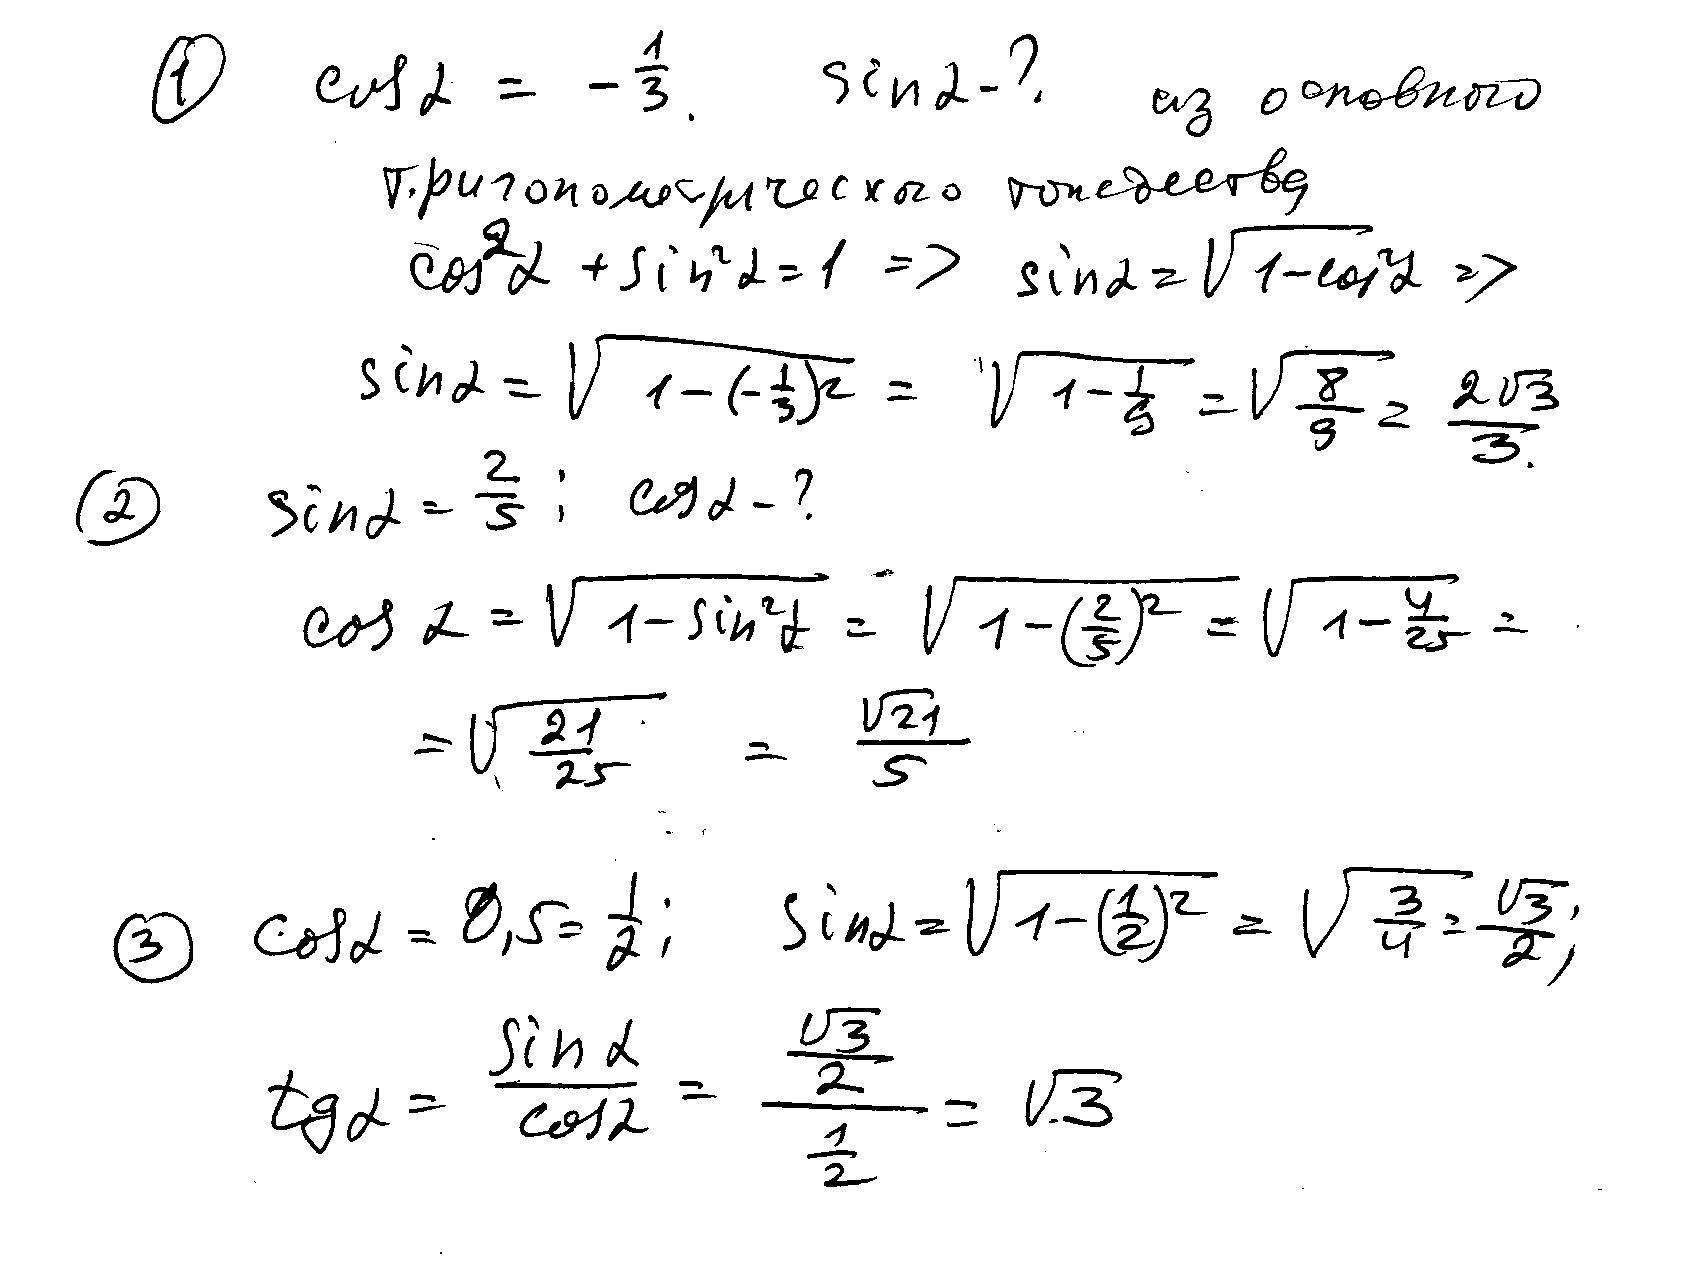 ① cos α = -1/3. sin α - ? из основного
тригонометрического тождества
cos²α + sin²α = 1 => sin α = √(1-cos²α) =>
sin α = √(1-(-1/3)²) = √(1-1/9) = √(8/9) = 2√3/3.
② sin α = 2/5; cos α - ?
cos α = √(1-sin²α) = √(1-(2/5)²) = √(1-4/25) =
= √(21/25) = √21/5
③ cos α = 0,5 = 1/2; sin α = √(1-(1/2)²) = √(3/4) = √3/2;
tg α = sin α/cos α = (√3/2)/(1/2) = √3